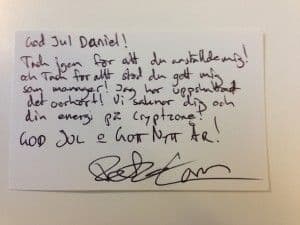 God Jul Daniel!
Tack igen för att du anställde mig!
och Tack för allt stöd du gett mig
som manager! Jag har uppskattat
det oerhört! Vi saknar dig och
din energi på Cryptzone!
GOD JUL o GOTT NYTT ÅR!